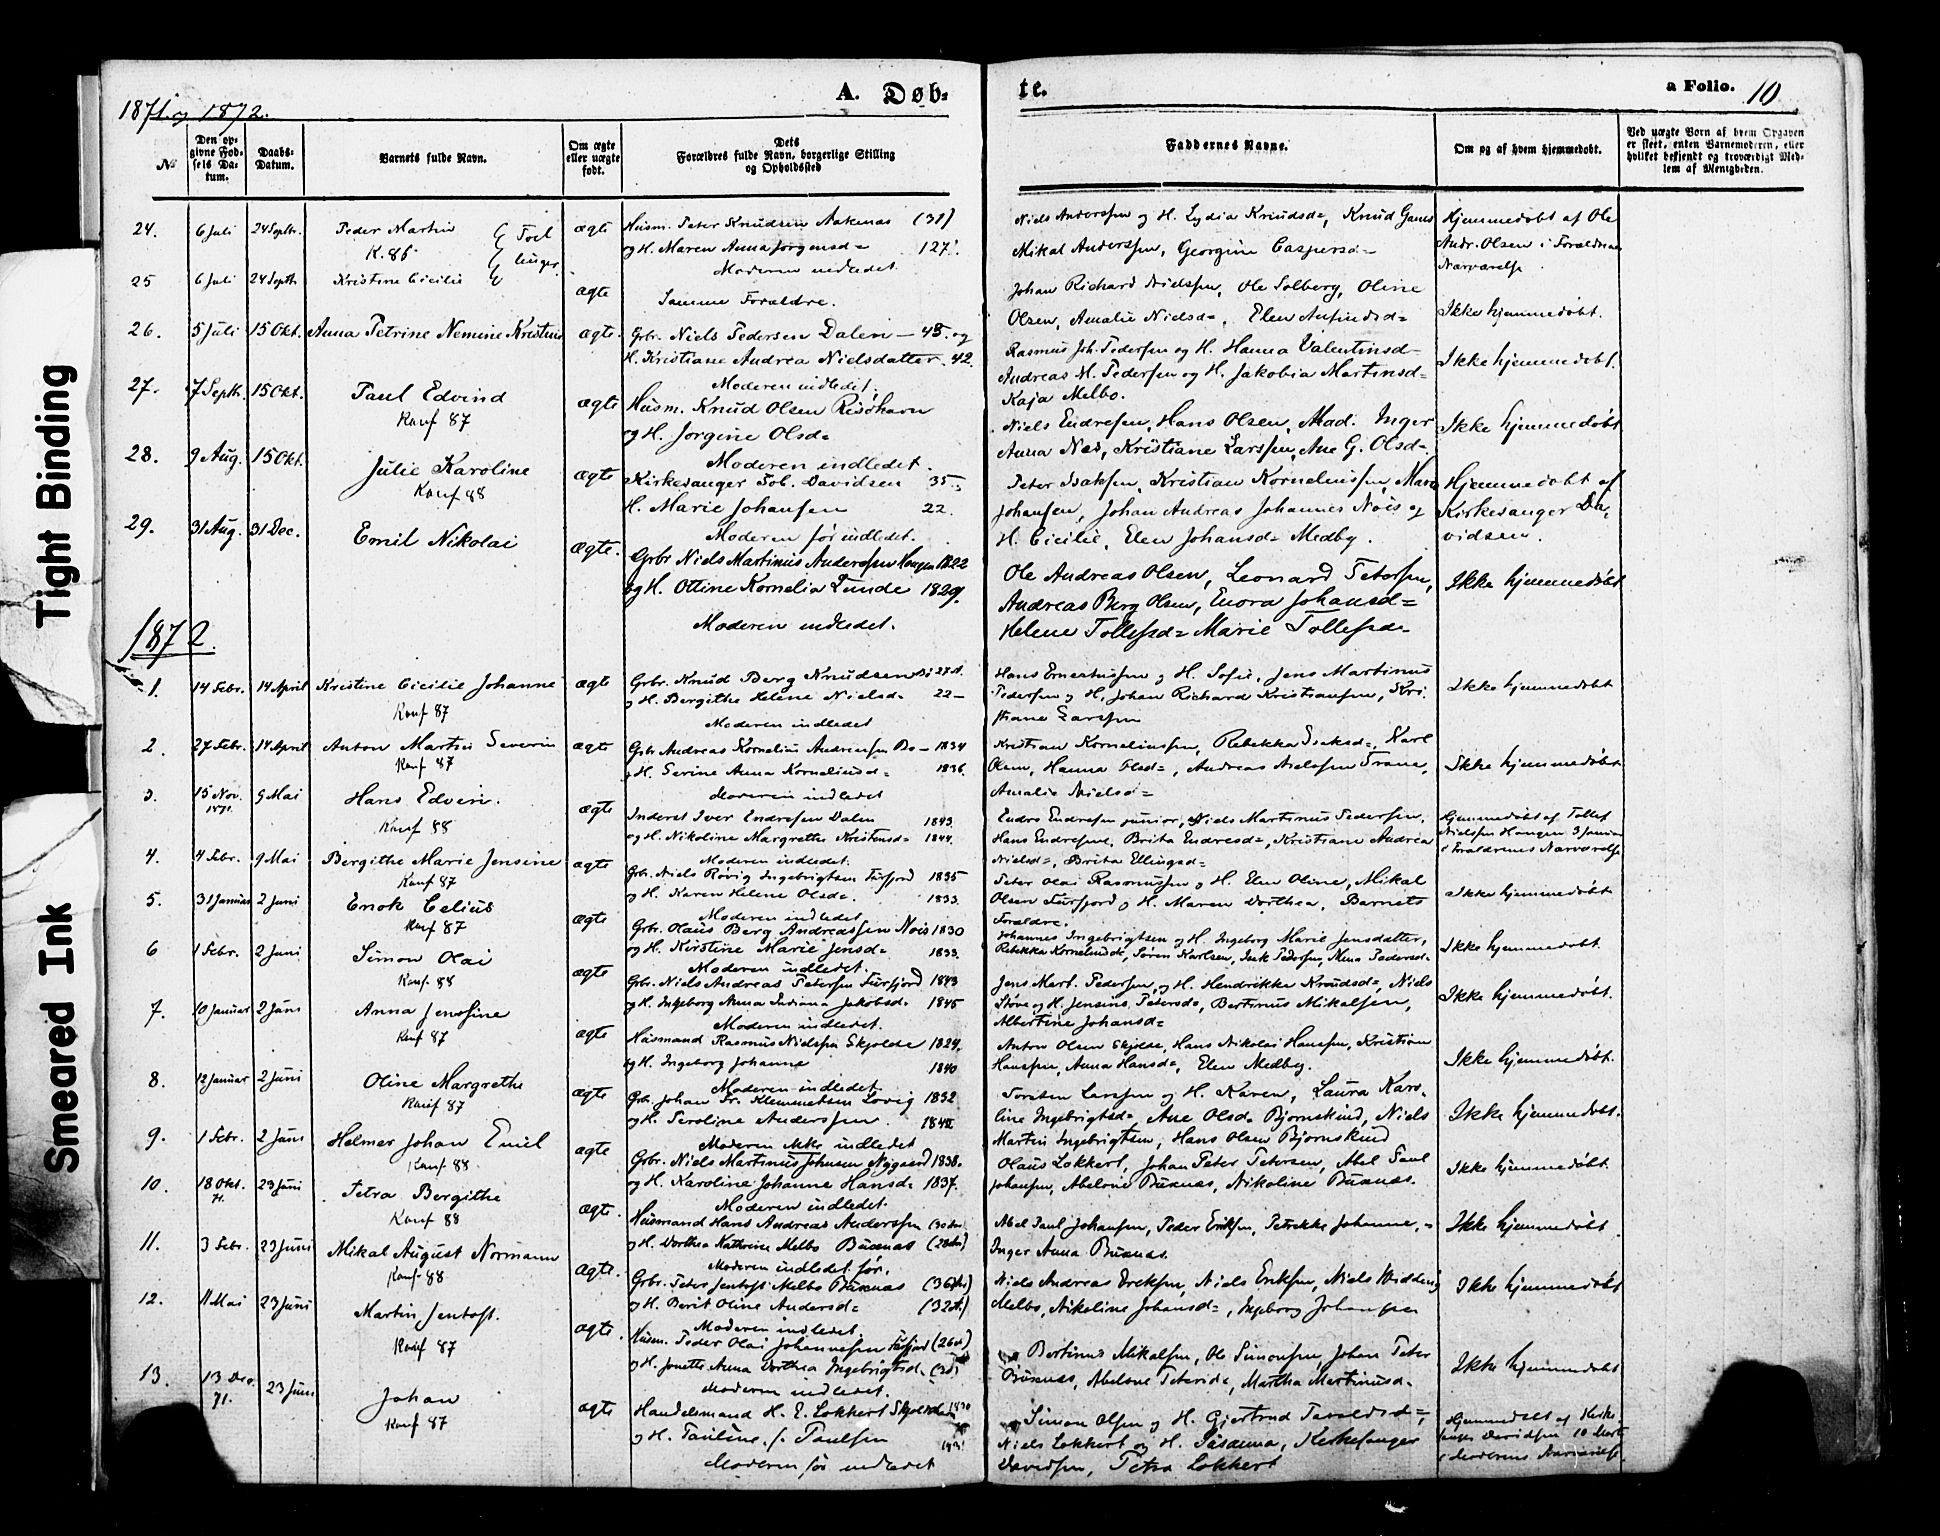 1871 og 1872.
A. Døb-
te.
a Folio. 10
No
Den op-
givne Fød-
sels Da-
tum.
Daabs-
Datum.
Barnets fulde Navn.
Om ægte
eller uægte
født.
Dets
Forældres fulde Navn, borgerlige Stilling
og Opholdssted
Faddernes Navne.
Om og af hvem hjemmedøbt.
Ved uægte Børn af hvem Opgaven
er skeet, enten Barnemoderen, eller
hvilket bekjendt og troværdigt Med-
lem af Menigheden.
24. 6 Juli 24 Septbr. Peder Martin ægte Husm. Peter Knudsen Aakenæs (31)
K. 86
og H. Maren Anna Jørgensd= 127
Moderen indledet
Niels Anderssen og H. Lydia Knudsd=, Knud
Mikal Anderssen, Georgine Caspersd=
Hjemmedøbt af Ole
Andr. Olsen i Forældrenes
Nærværelse.
25 6 Juli 24 Septbr Kristine Cicilie ægte
Samme Forældre.
Johan Richard Nielsen, Ole Solberg, Oline
Olsen, Amalie Nielsd=, Elen
Ikke hjemmedøbt.
26. 5 Juli 15 Okt. Anna Petrine Nemine Kristine ægte. Grb. Niels Pedersen Dalen — 45. og
H. Kristiane Andrea Nielsdatter. 42.
Moderen indledet.
Rasmus Joh. Pedersen og H. Hanna Valentinsd=
Andreas M. Pedersen og H. Jakobia Martinsd=
Kaja Melbo.
Ikke hjemmedøbt.
27. 7 Septb. 15 Okt. Paul Edvind ægte Husm. Knud Olsen Risøhavn
Konf 87
og H. Jørgine Olsd=
Moderen indledet.
Niels Endresen, Hans Olsen, Mad. Inger
Anna Næs, Kristiane Larssen, Ane G. Olsd=.
Ikke hjemmedøbt
28. 9 Aug. 15 Okt. Julie Karoline ægte Kirkesanger Tob. Davidsen 35
Konf 88
H. Marie Johansen 22.
Moderen før indledet.
Peter Isaksen, Kristian Korneliussen, Maren
Johansen, Johan Andreas Johannes Nøis og
H. Cicilie, Elen Johansd= Medby.
Hjemmedøbt af
Kirkesanger Da-
vidsen.
29. 31 Aug. 31 Dec. Emil Nikolai ægte. Grbr Niels Martinus Anderssen Haugen 1822
og H. Ottine Kornelia Lunde 1829.
Moderen indledet.
Ole Andreas Olsen, Leonard Petersen,
Andreas Berg Olsen, Enora Johansd=
Helene Tollefsd= Marie Tollefsd=
Ikke hjemmedøbt
1872.
1. 14 Febr. 14 April Kristine Cicilie Johanne ægte Grbr. Knud Berg Knudsen Bø 27 A.
Konf 87
og H. Bergithe Helene Nielsd= 22 —
Moderen indledet
Hans Ernestussen og H. Sofie, Jens Martinus
Pedersen og H, Johan Richard Kristiansen, Kri-
stiane Larssen
Ikke hjemmedøbt
2. 27 Febr. 14 April Anton Martin Severin ægte Grbr Andreas Kornelius Andreassen Bø — 1834
Konf 87
og H. Serine Anna Korneliusd= 1836.
Moderen indledet
Kristian Korneliussen, Rebekka Isaksd=, Karl
Olsen, Hanna Olsd=, Andreas Nielssen Trane,
Amalie Nielsd=
Ikke hjemmedøbt
3. 15 Nov. 1871. 9 Mai Hans Edvin. ægte Inderst Iver Endresen Dalen 1843
Konf 88
og H. Nikoline Margrethe Kristensd= 1844.
Moderen indledet.
Endre Endresen junior, Niels Martinus Pedersen,
Hans Endresen, Brita Endresd=, Kristiane Andrea
Nielsd=, Brita Ellingsd=
Hjemmedøbt af Tollef
Nielssen Haugen 3 Januar
i Forældrenes Nærværelse
4. 4 Febr. 9 Mai Bergithe Marie Jensine ægte Grb. Niels Røvig Ingebrigtsen Furfjord 1835
Konf 87
og H. Karen Helene Olsd=. 1833.
Moderen indledet
Peter Olai Rasmussen og H. Elen Oline, Mikal
Olsen Furfjord og H. Maren Dorthea, Barnets
Forældre.
Ikke hjemmedøbt
5. 31 Januar 2 Juni Enok Celius ægte Grbr. Olaus Berg Andreassen Nøis 1830
Konf 87
og H. Kirstine Marie Jensd= 1833.
Moderen indledet.
Johannes Ingebrigtsen og H. Ingeborg Marie Jensdatter,
Rebekka Korneliusd=, Søren Karlsen, Isak Pedersen, Anna Pedersd=
Ikke hjemmedøbt.
6 1 Febr. 2 Juni Simon Olai ægte Grbr. Niels Andreas Petersen Furfjord 1843
Konf 88
og H. Ingeborg Anna Indiana Jakobsd= 1845
Moderen indledet.
Jens Mart. Pedersen, og H. Hendrikke Knudsd=, Niels
Støve og H. Jensine Petersd=, Bertinus Mikalsen,
Albertine Johansd=
Ikke hjemmedøbt.
7. 10 Januar 2 Juni Anna Jensine ægte Husmand Rasmus Nielssen Skjolde 1824.
Konf 87
og H. Ingeborg Johanne 1840
Moderen indledet.
Anton Olsen Skjolde, Hans Nikolai Hanssen, Kristian
Hanssen, Anna Hansd=, Elen Medby.
Ikke hjemmedøbt.
8. 12 Januar 2 Juni Oline Margrethe ægte Grb. Johan Fr. Klemmetsen Lovig 1832
Konf 87
og H. Seroline Anderssen.
Moderen ikke indledet
Torsten Larssen og H. Karen, Laura Karo-
line Ingebrigtsd=, Ane Olsd= Bjørnskind, Niels
Martin Ingebrigtsen, Hans Olsen Bjørnskind
Ikke hjemmedøbt.
9. 1 Febr. 2 Juni Helmer Johan Emil ægte Grbr. Niels Martinus Johnsen Nygaard 1838.
Konf 88
og H. Karoline Johanne Hansd= 1837.
Moderen indledet.
Olaus Lokkert, Johan Peter Petersen, Abel Paul
Johansen, Abelone Buxnæs, Nikoline Buxnæs.
Ikke hjemmedøbt.
10. 18 Okt. 71. 23 Juni Petra Bergithe ægte. Husmand Hans Andreas Anderssen (30 År)
Konf 88
og H. Dorthea Kathrine Melbo Buxnæs (28 År)
Moderen indledet før.
Abel Paul Johansen, Peder Eriksen, Petrikke Johanne,=
Inger Anna Buxnæs.
Ikke hjemmedøbt
11. 3 Febr. 23 Juni Mikal August Normann ægte. Grbr. Peter Jentoft Melbo Buxnæs (36 År)
Konf 88
og H. Berit Oline Andersd= (32 A.)
Moderen indledet.
Niels Andreas Ereksen, Niels Eriksen, Niels Widding
Melbo, Nikoline Johansd=, Ingeborg Johansen
Ikke hjemmedøbt
12. 11 Mai 23 Juni Martin Jentoft. ægte. Husm. Peder Olai Johannesen (26 A)
Konf 87
og H. Jonette Anna Dorthea Ingebrigtsd=
Moderen indledet.
Bertinus Mikalsen, Ole Simonsen, Johan Peter
Buxnæs, Abelone Petersd=, Martha Martinusd=
Ikke hjemmedøbt
13. 13 Dec. 71. 23 Juni Johan ægte Handelsmand H. E. Lokkert Skjolde 1830
Konf 87
og H. Pauline, f. Paulsen
Moderen før indledet
Simon Olsen og H. Gjertrud
Niels Lokkert og H. Susanna, Kirkesanger
Davidsen, Petra Lokkert
Hjemmedøbt af Kirke-
sanger Davidsen 10 Marts
i Moderens Nærværelse
Tight Binding
Smeared Ink